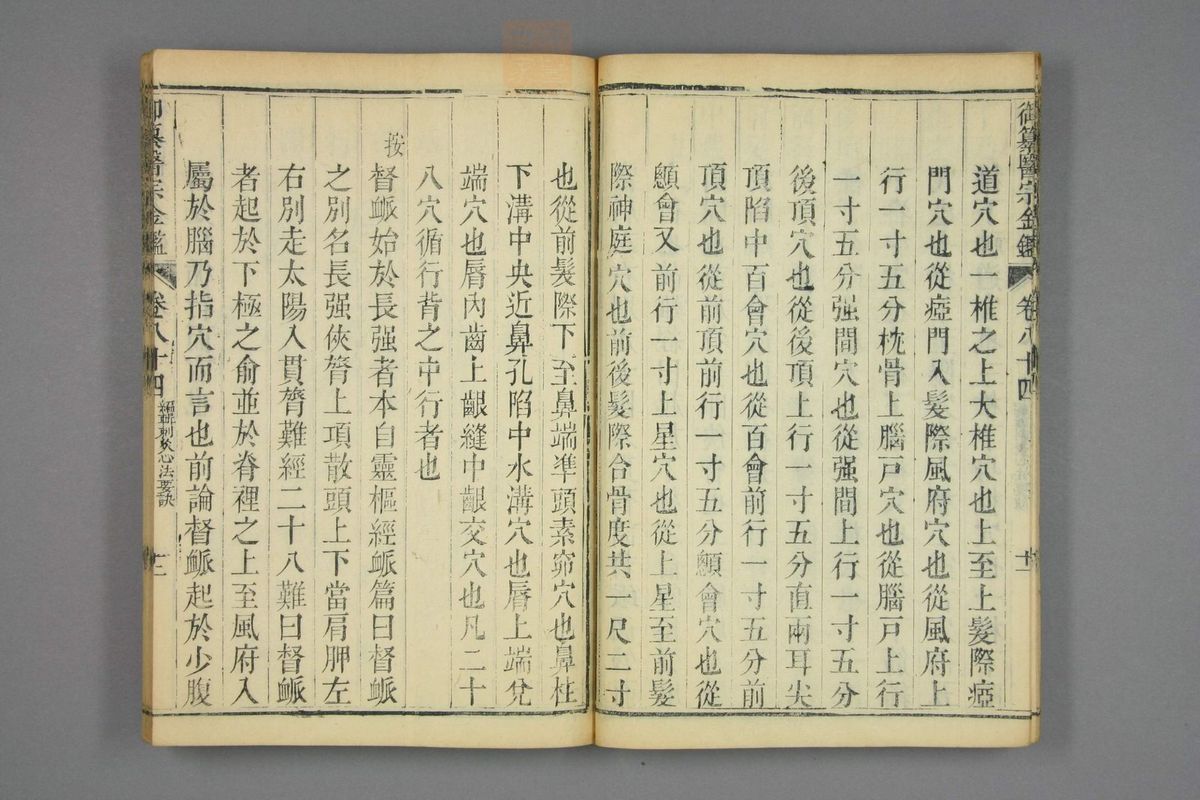 御纂醫宗金鑑 卷八十四
道穴也一椎之上大椎穴也上至上髮際瘂
門穴也從瘂門入髮際風府穴也從風府上
行一寸五分枕骨上腦戸穴也從腦戸上行
一寸五分强間穴也從强間上行一寸五分
後頂穴也從後頂上行一寸五分直兩耳尖
頂陷中百會穴也從百會前行一寸五分前
頂穴也從前頂前行一寸五分顖會穴也從
顖會又前行一寸上星穴也從上星至前髮
際神庭穴也前後髮際合骨度共一尺二寸
也從前髮際下至鼻端準頭素窌穴也鼻柱
下溝中央近鼻孔陷中水溝穴也唇上端兌
端穴也唇內齒上齦縫中齦交穴也凡二十
八穴循行背之中行者也
按
督衇始於長强者本自靈樞經衇篇曰督衇
之別名長强俠膂上項散頭上下當肩胛左
右別走太陽入貫膂難經二十八難曰督衇
者起於下極之俞並於脊裡之上至風府入
屬於腦乃指穴而言也前論督衇起於少腹
御纂醫宗金鑑 卷八十四 編輯刺灸心法要訣